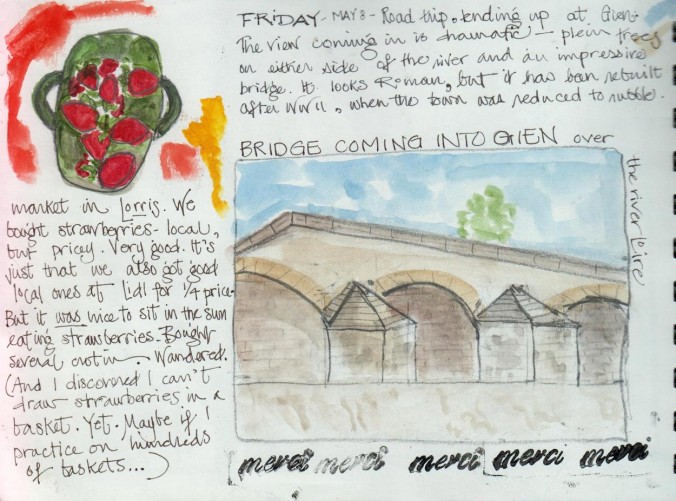 FRIDAY - MAY 8 - Road trip, ending up at Gien.
The view coming in is dramatic - plein trees
on either side of the river and an impressive
bridge. It looks Roman, but it has been rebuilt
after WWII, when the town was reduced to rubble.
BRIDGE COMING INTO GIEN over
the river Loire
market in Lorris. We
bought strawberries - local,
but pricey. Very good. It's
just that we also got good
local ones at Lidl for 1/4 price.
But it was nice to sit in the sun
eating strawberries. Bought
several Wandered.
(And I discovered I can't
draw strawberries in a
basket. Yet. Maybe if I
practice on hundreds
of baskets...)
merci merci merci merci merci